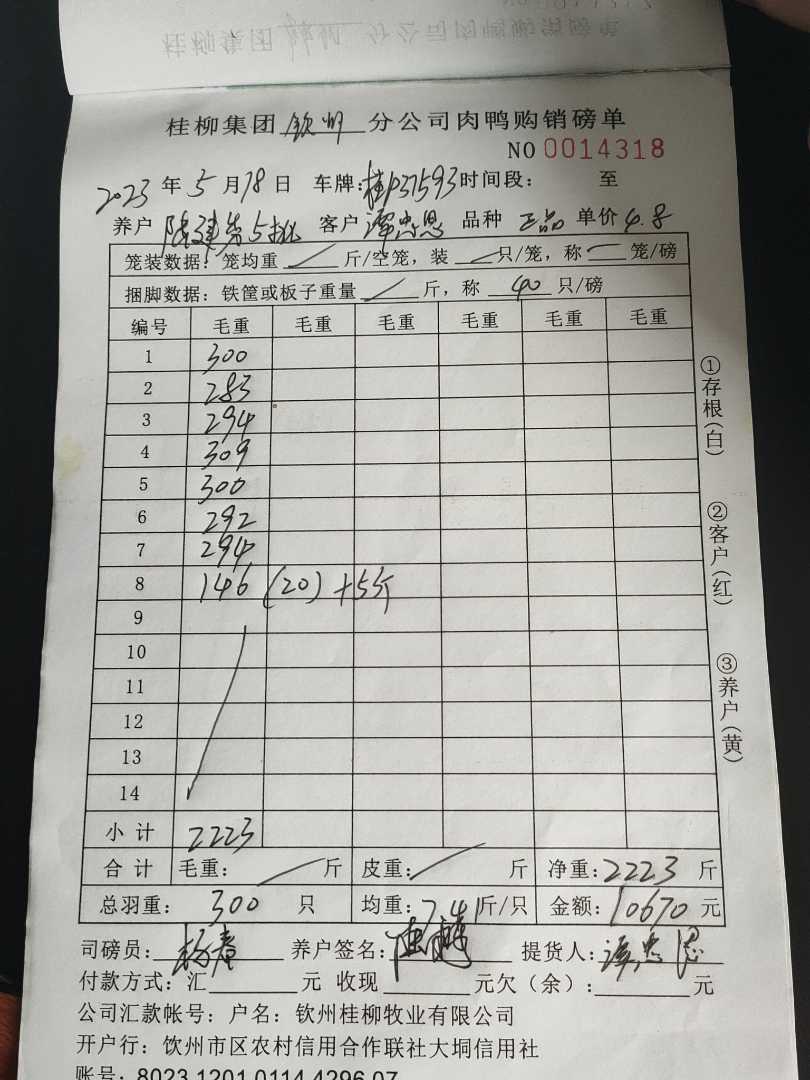 桂柳集团 钦州 分公司肉鸭购销磅单
NO 0014318
2023 年 5 月 18 日 车牌:桂P37593 时间段: 至
养户 陆建芳5批 客户 谭忠恩 品种 正品 单价 4.8
笼装数据:笼均重 / 斤/空笼,装 / 只/笼,称 / 笼/磅
捆脚数据:铁筐或板子重量 / 斤,称 40 只/磅
编号 毛重 毛重 毛重 毛重 毛重 毛重
1 300
2 283
3 294
4 309
5 300
6 292
7 294
8 146 (20) +5斤
9
10
11
12
13
14
小计 2223
合计 毛重: / 斤 皮重: / 斤 净重:2223 斤
总羽重: 300 只 均重:7.41斤/只 金额:10670 元
①存根(白)
②客户(红)
③养户(黄)
司磅员: 养户签名: 提货人:谭忠恩
付款方式:汇 元 收现 元欠(余): 元
公司汇款帐号:户名:钦州桂柳牧业有限公司
开户行:饮州市区农村信用合作联社大垌信用社
账号:8023 1201 0114 4296 07